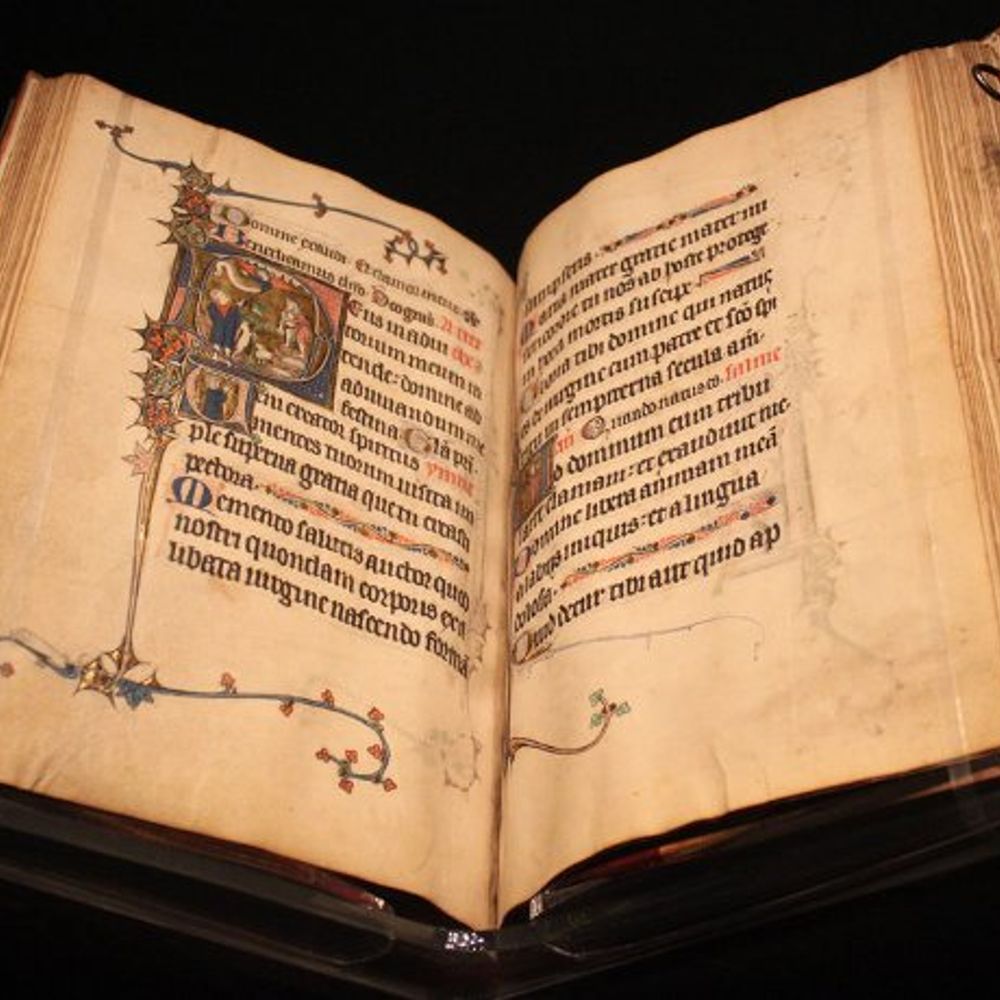 Domine exaudi. Et clamor meus
Benedicamus dño. Deo gñas. A tier
Deus in adiu
torium meum in
tende: domine ad
adiuuandum me
festina. Glã pri.
Veni creator spiritus ymne
mentes tuorum uisita im
ple superna gratia que tu creasti
pectora.
Memento salutis auctor quod
nostri quondam corporis ex il
libata uirgine nascendo formã
sumpseris.
Maria mater gratie mater mi
sericordie tu nos ab hoste protege
in hora mortis suscipe.
Gloria tibi domine qui natus
es de uirgine cum patre et sc̃o spũ
in sempiterna secula am̃.
Quando natus es. salme
Ad dominum cum tribu
larer clamaui: et exaudiuit me.
Domine libera animam meã
a labijs iniquis: et a lingua
dolosa.
Quid detur tibi aut quid ap